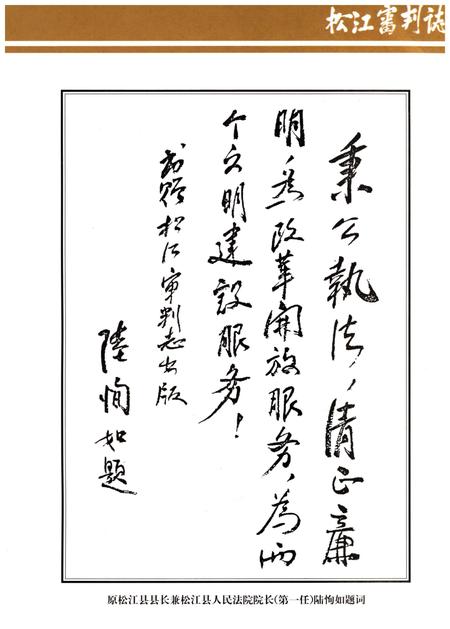 松江審判誌
秉公執法，清正廉
明，為改革開放服务，為两
个文明建設服务！
祝贺松江审判志出版
陸恂如题
原松江县县长兼松江县人民法院院长(第一任)陆恂如题词